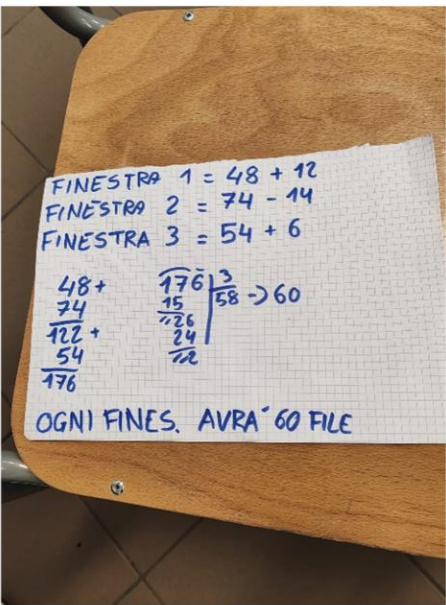 FINESTRA 1 = 48 + 12
FINESTRA 2 = 74 - 14
FINESTRA 3 = 54 + 6
48 +
74
122 +
54
176
176 | 3
15 | 58 -> 60
26
24
2
OGNI FINES. AVRA' 60 FILE